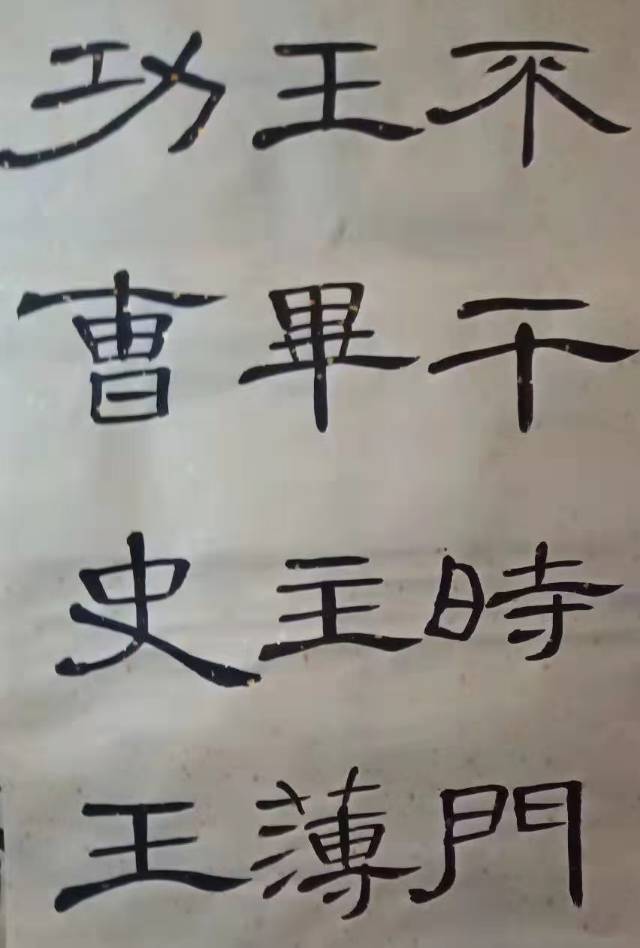 不干時門
王畢主薄
功曹史王